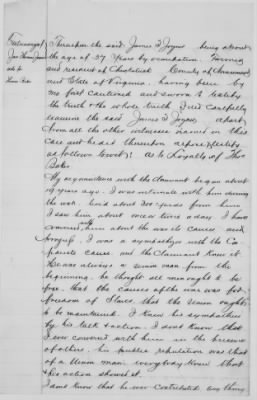 Testimony of
Jas Thomas Joynes
as to
Thomas Baker
Thereupon the said James T Joynes being about
the age of 37 Years by examination. Farming
and resident of County of Accomack
and State of Virginia, having been by
me first cautioned and sworn to testify
the truth & the whole truth I did carefully
examine the said James T Joynes apart
from all the other witnesses named in this
case and he did thereupon depose & testify
as follows to wit; As to Loyalty of Thos
Baker
My acquaintance with the Claimant began about
19 years ago. I was intimate with him during
the war. Lived about 300 yards from him
I saw him about once or twice a day. I have
conversed with him about the war its causes and
progress. I was a sympathizer with the Con
federate cause and the Claimant knew it.
He was always a union man from the
beginning, he thought all men ought to be
free, that the causes of the war was for
freedom of Slaves, that the Union ought
to be maintained. I knew his sympathies
by his talk & action. I dont know that
I ever conversed with him in the presence
of others, his public reputation was that
of a Union man, everybody knew that
his action showed it.
I dont know that he ever contributed any thing